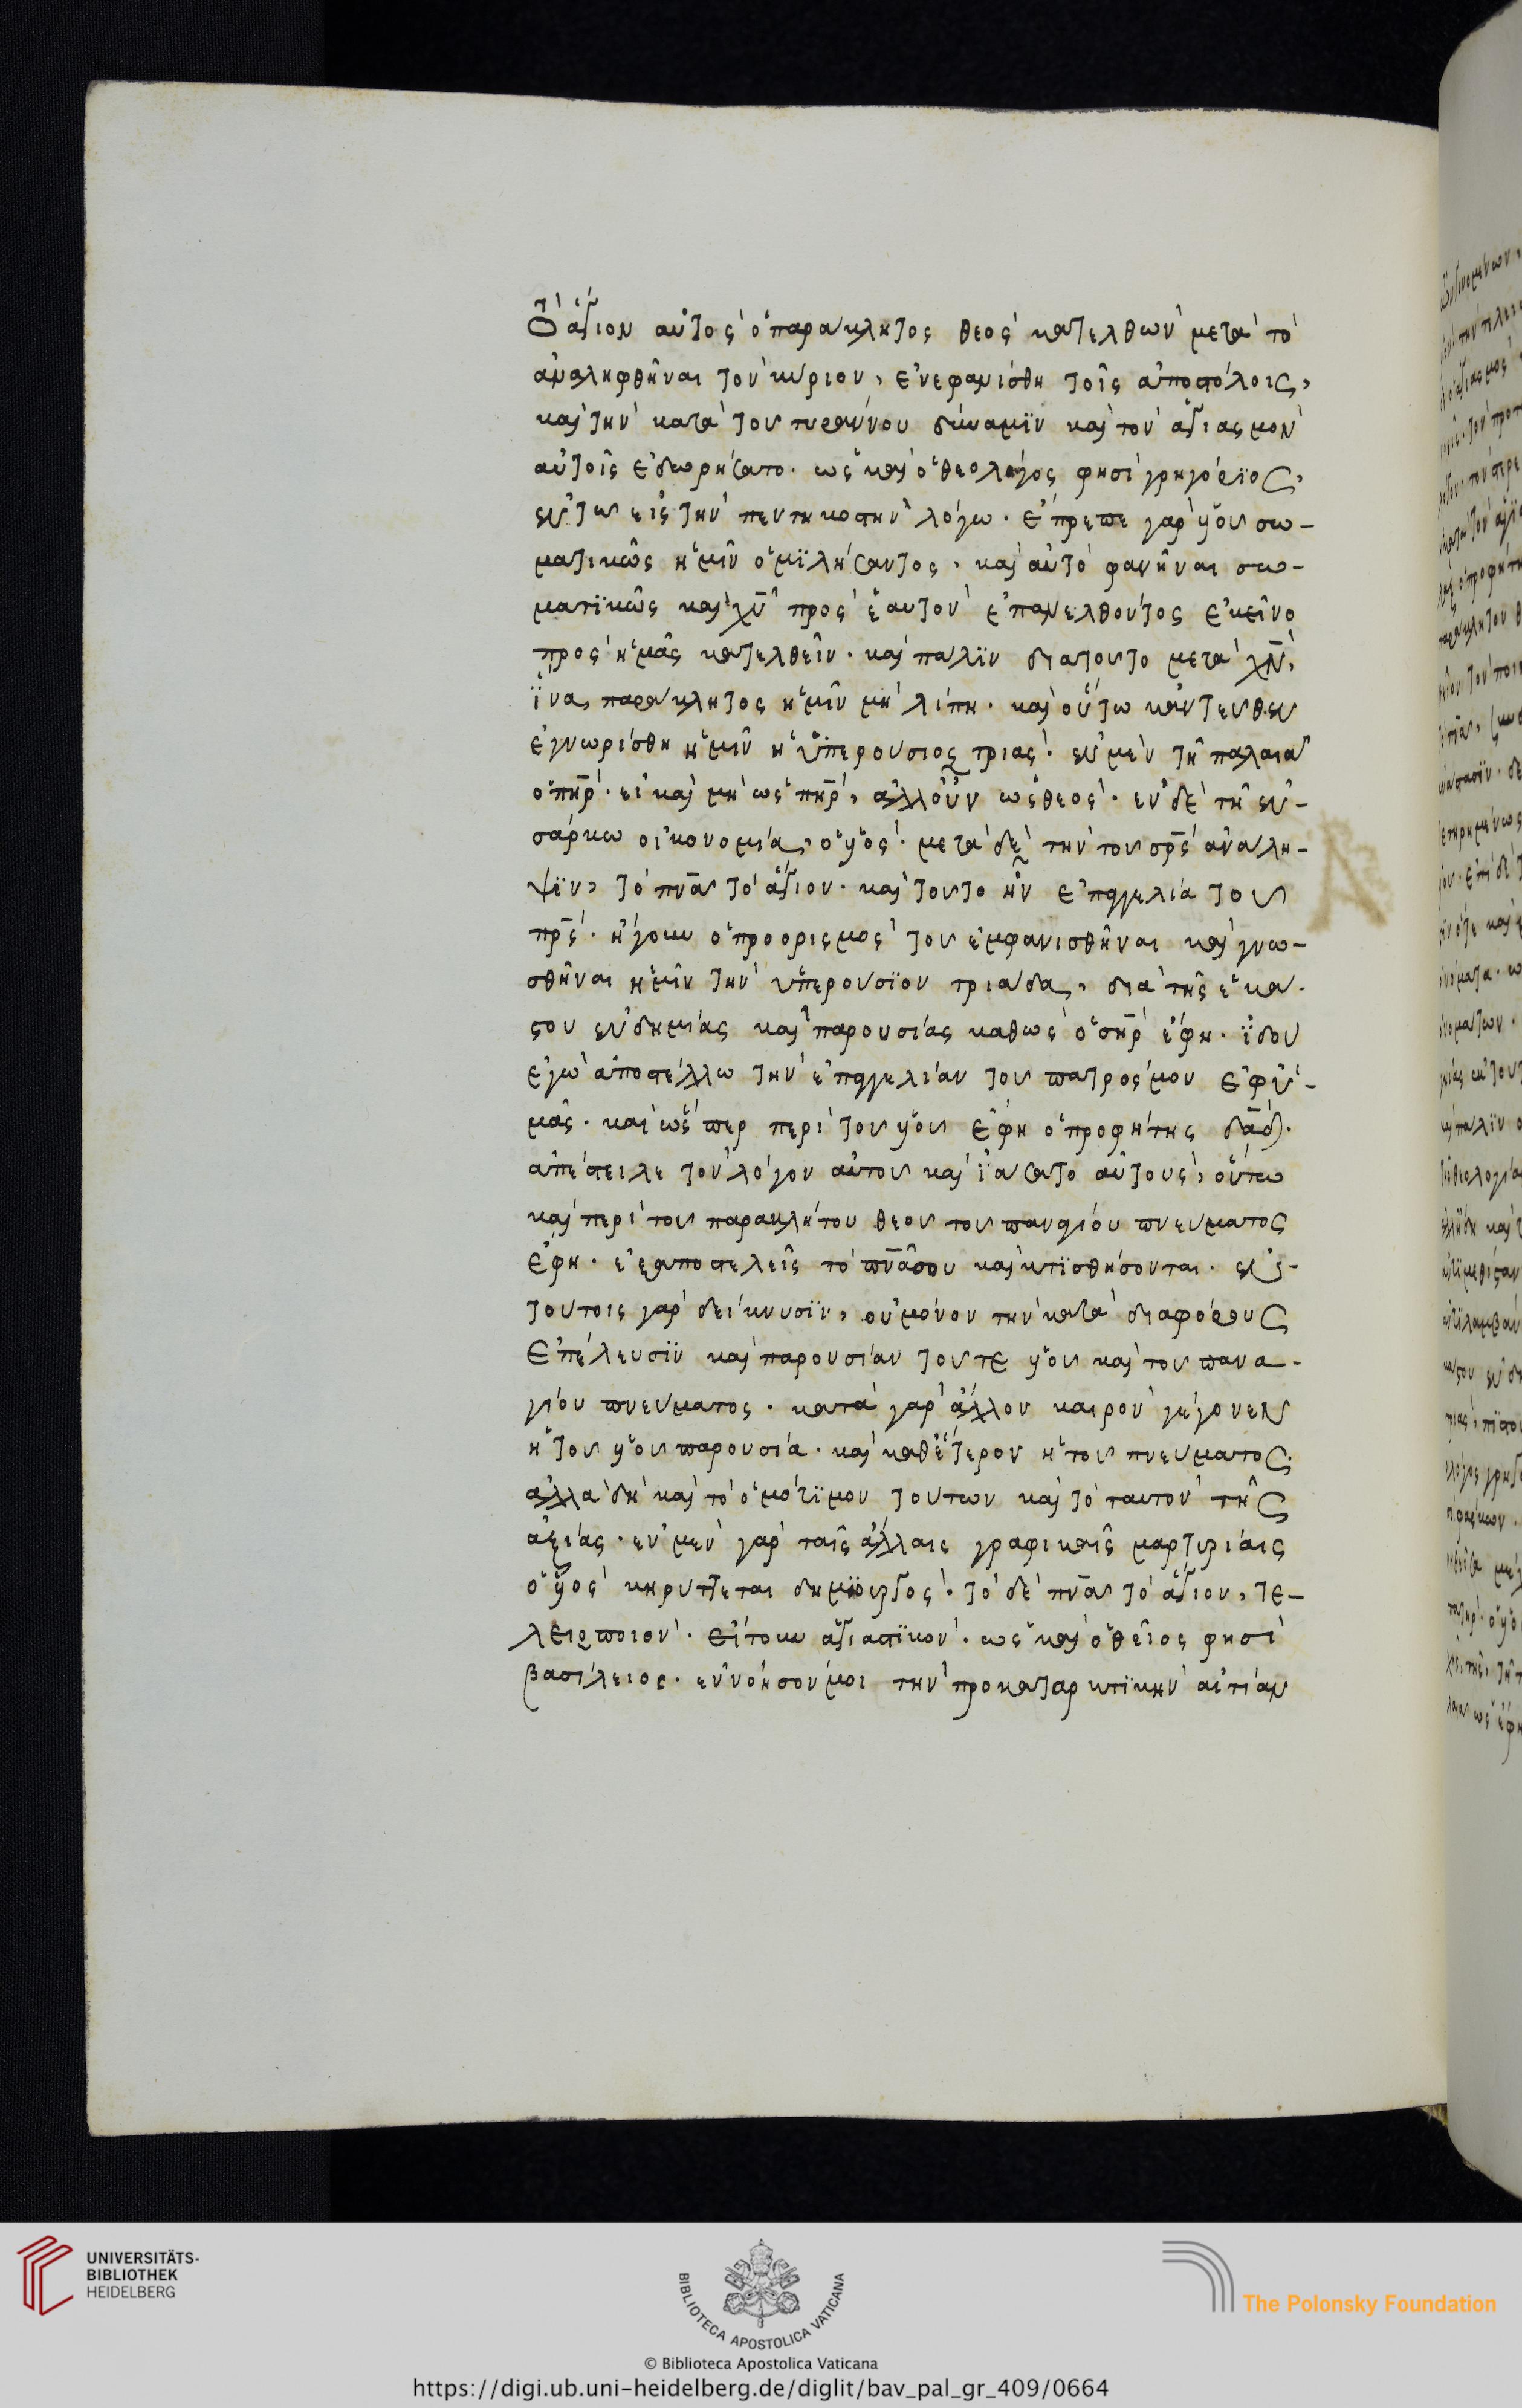 τὸ ἅγιον αὐτὸς ὁ παράκλητος θεὸς κατελθὼν μετὰ τὸ
ἀναληφθῆναι τὸν κύριον, ἐνεφανίσθη τοῖς ἀποστόλοις,
καὶ τὴν κατὰ τοῦ τυράννου δύναμϊν καὶ τὸν ἁγιασμὸν
αὐτοῖς ἐδωρήσατο. ὡς καὶ ὁ θεολόγος φησὶ γρηγόριος,
ἐν τῶ εἰς τὴν πεντηκοστὴν λόγω. ἔπρεπε γὰρ ὑϊοῦ σω-
ματικῶς ἡμῖν ὁμϊλήσαντος, καὶ αὐτὸ φανῆναι σω-
ματϊκῶς καὶ χῦ πρὸς ἑαυτὸν ἐπανελθόντος ἐκεῖνο
πρὸς ἡμᾶς κατελθεῖν. καὶ πάλϊν διατοῦτο μετὰ χν̄,
ἵνα παράκλητος ἡμῖν μὴ λίπη. καὶ οὕτω κἀντεῦθεν
ἐγνωρίσθη ἡμῖν ἡ ὑπερούσιος τριάς. ἐν μὲν τῆ παλαιᾶ
ὁ πηρ̄. εἰ καὶ μὴ ὡς πηρ̄, ἀλλοῦν ὡς θεός. ἐν δὲ τῆ ἐν-
σάρκω οἰκονομία, ὁ ὑϊός. μετὰ δὲ τὴν τοῦ σρ̄ς ἀνάλη-
ψϊν, τὸ πνᾱ τὸ ἅγιον. καὶ τοῦτο ἦν ἐπαγγελία τοῦ
πρ̄ς. ἤγουν ὁ προορισμὸς τοῦ ἐμφανισθῆναι καὶ γνω-
σθῆναι ἡμῖν τὴν ὑπερούσϊον τριάδα, διὰ τῆς ἑκά-
στου ἐνδημίας καὶ παρουσίας καθὼς ὁ σηρ̄ ἔφη. ϊδοὺ
ἐγὼ ἀποστέλλω τὴν ἐπαγγελίαν τοῦ πατρός μου ἐφ ὑ-
μᾶς. καὶ ὥσπερ περὶ τοῦ ὑϊοῦ ἔφη ὁ προφήτης δᾱδ.
ἀπέστειλε τὸν λόγον αὐτοῦ καὶ ἰάσατο αὐτούς, οὕτω
καὶ περὶ τοῦ παρακλήτου θεοῦ τοῦ παναγίου πνεύματος
ἔφη. ἐξαποστελεῖς τὸ πνᾱ σου καὶ κτϊσθήσονται. ἐν-
τούτοις γὰρ δείκνυσϊν, οὐ μόνον τὴν κατὰ διαφόρους
ἐπέλευσϊν καὶ παρουσίαν τοῦ τε ὑϊοῦ καὶ τοῦ πανα-
γίου πνεύματος. κατὰ γὰρ ἄλλον καιρὸν γέγονεν
ἡ τοῦ ὑϊοῦ παρουσία. καὶ καθ ἕτερον ἡ τοῦ πνεύματος.
ἀλλὰ δὴ καὶ τὸ ὁμότϊμον τούτων καὶ τὸ ταυτὸν τῆς
ἀξίας. ἐν μὲν γὰρ ταῖς ἄλλαις γραφικαῖς μαρτυρίαις
ὁ ὑϊὸς κηρύττεται δημϊουργός. τὸ δὲ πνᾱ τὸ ἅγιον, τε-
λειωποιόν. εἴτουν ἁγιαστϊκόν. ὡς καὶ ὁ θεῖος φησὶ
βασίλειος. ἐννόησόν μοι τὴν προκαταρκτϊκὴν αἰτίαν
UNIVERSITÄTS-
BIBLIOTHEK
HEIDELBERG
BIBLIOTECA APOSTOLICA VATICANA
The Polonsky Foundation
© Biblioteca Apostolica Vaticana
https://digi.ub.uni-heidelberg.de/diglit/bav_pal_gr_409/0664